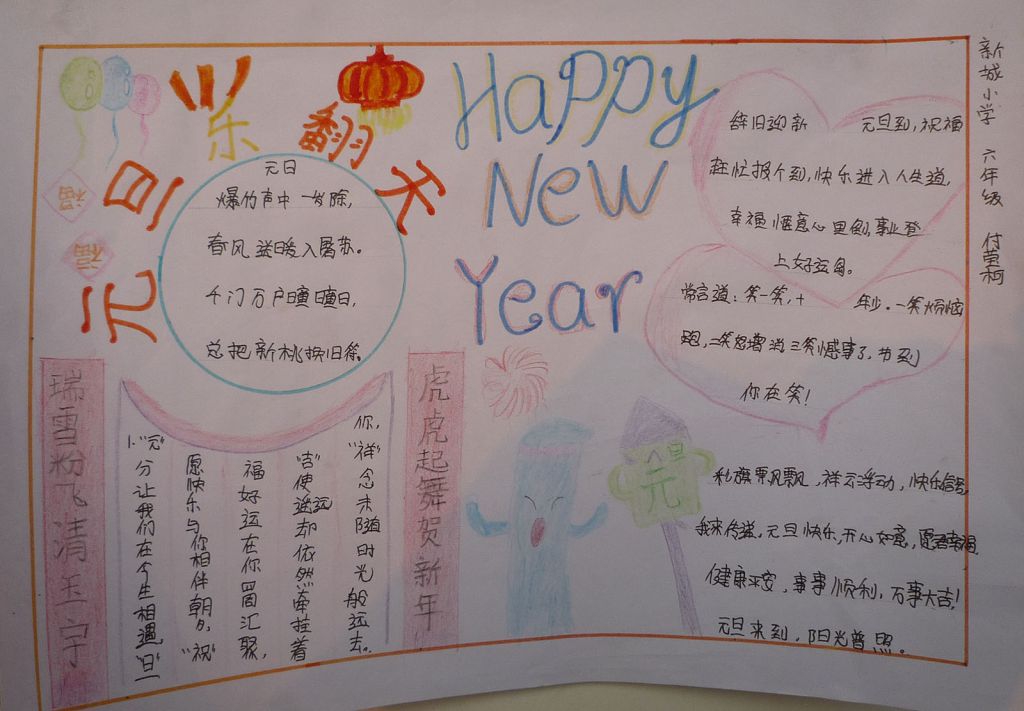 元旦乐翻天
福
福
Happy
New
Year
元日
爆竹声中一岁除,
春风送暖入屠苏。
千门万户瞳瞳日,
总把新桃换旧符。
辞旧迎新 元旦到,祝福
赶忙报个到,快乐进入人生道,
幸福惬意心里刨,事业登
上好运舟。
常言道:笑一笑,十 年少。一笑烦恼
跑,二笑怨憎消,三笑憾事了,
你在笑!
瑞雪粉飞清玉宇
虎虎起舞贺新年
1."元"
分让我们在今生相遇,"旦"
愿快乐与你相伴朝夕,"祝"
福好运在你四周汇聚,
"吉"使遥远却依然牵挂着
你,"祥"念未随时光般远去。
元旦
彩旗飘飘,祥云浮动,快乐
我来传送,元旦快乐,开心如意,愿君幸福
健康平安,事事顺利,万事大吉!
元旦来到,阳光普照。
新城小学 六年级